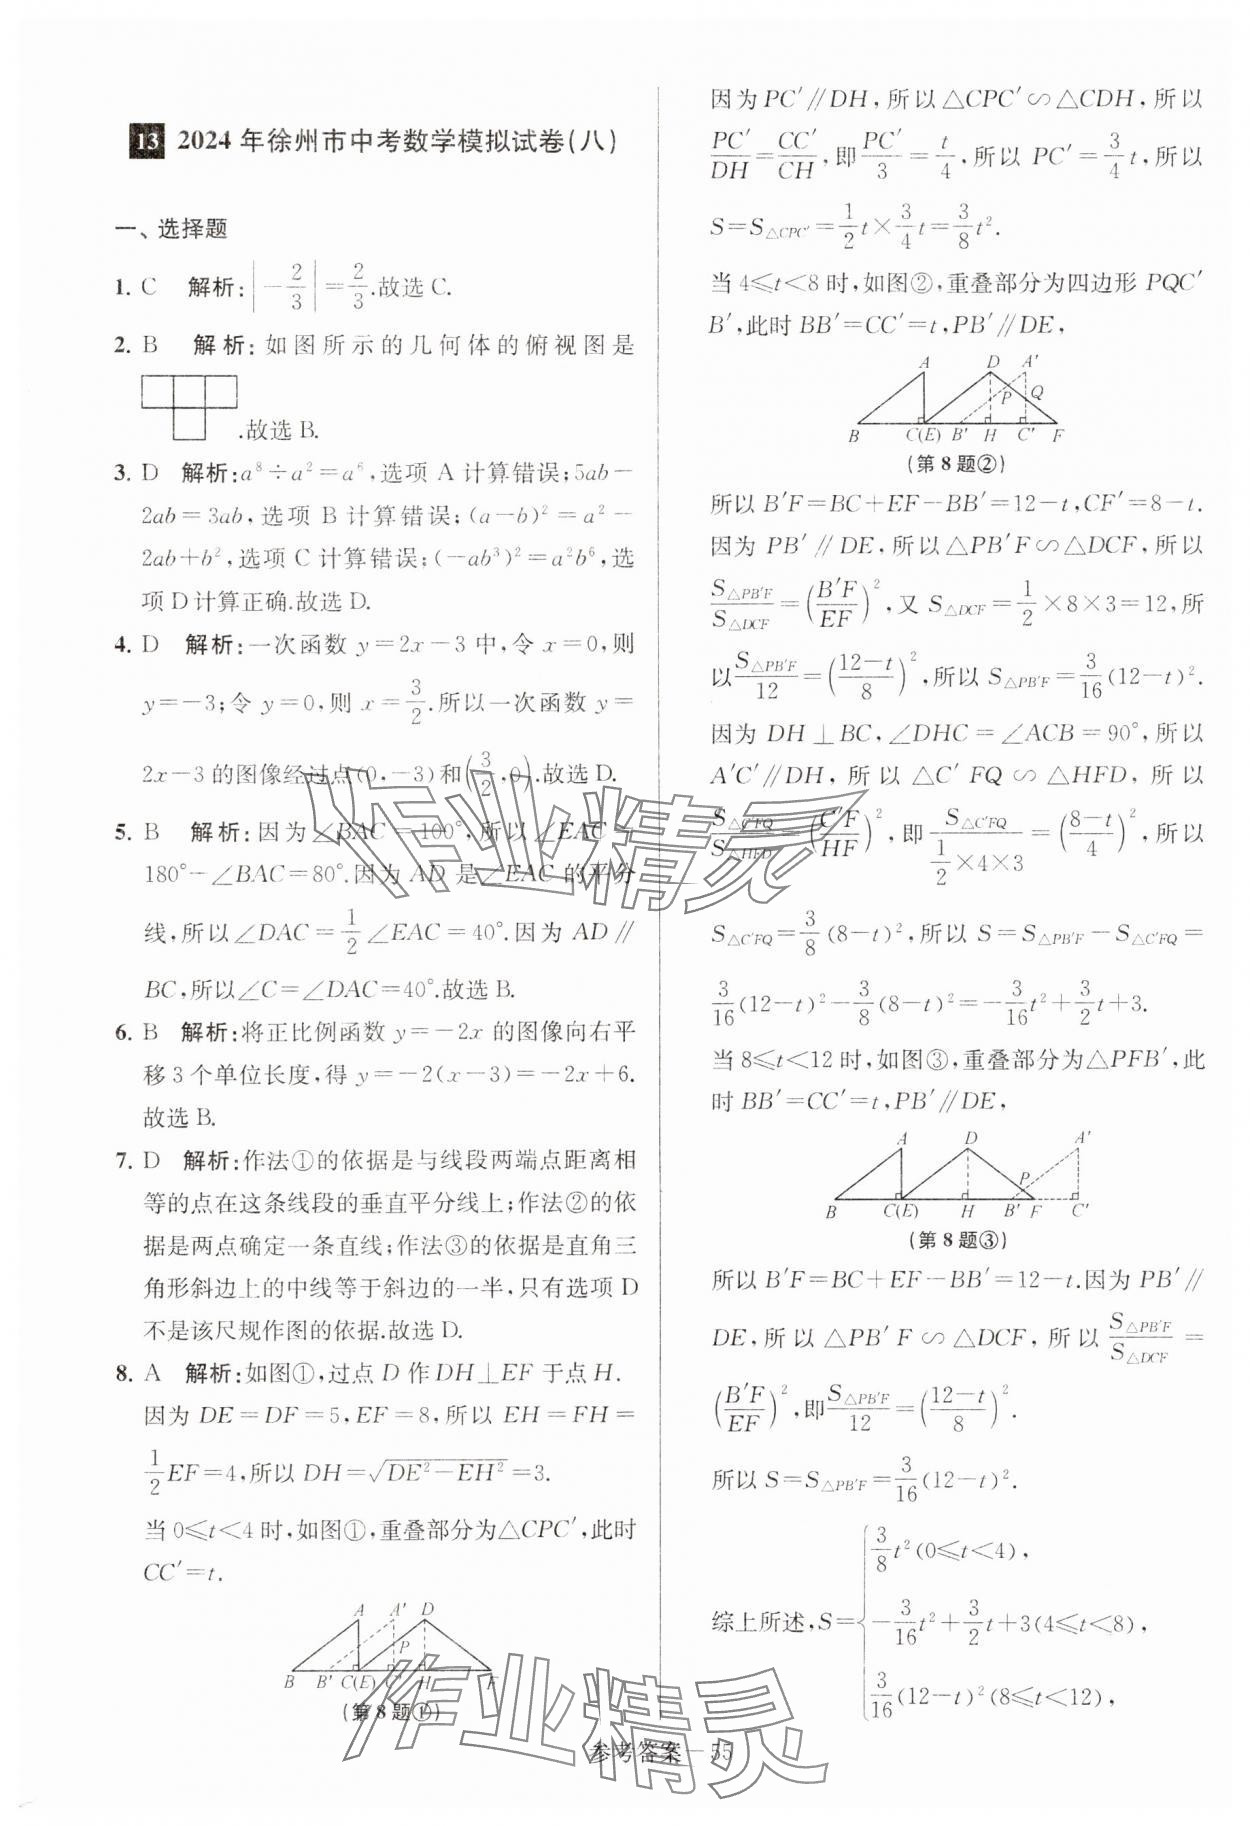 13 2024年徐州市中考数学模拟试卷(八)
一、选择题
1. C 解析:|-2/3|=2/3.故选C.
2. B 解析:如图所示的几何体的俯视图是
.故选B.
3. D 解析:a⁸÷a²=a⁶,选项A计算错误;5ab-
2ab=3ab,选项B计算错误;(a-b)²=a²-
2ab+b²,选项C计算错误;(-ab³)²=a²b⁶,选
项D计算正确.故选D.
4. D 解析:一次函数y=2x-3中,令x=0,则
y=-3;令y=0,则x=3/2.所以一次函数y=
2x-3的图像经过点(0,-3)和(3/2,0).故选D.
5. B 解析:因为∠BAC=100°,所以∠EAC=
180°-∠BAC=80°.因为AD是∠EAC的平分
线,所以∠DAC=1/2∠EAC=40°.因为AD∥
BC,所以∠C=∠DAC=40°.故选B.
6. B 解析:将正比例函数y=-2x的图像向右平
移3个单位长度,得y=-2(x-3)=-2x+6.
故选B.
7. D 解析:作法①的依据是与线段两端点距离相
等的点在这条线段的垂直平分线上;作法②的依
据是两点确定一条直线;作法③的依据是直角三
角形斜边上的中线等于斜边的一半,只有选项D
不是该尺规作图的依据.故选D.
8. A 解析:如图①,过点D作DH⊥EF于点H.
因为DE=DF=5,EF=8,所以EH=FH=
1/2EF=4,所以DH=√(DE²-EH²)=3.
当0≤t<4时,如图①,重叠部分为△CPC′,此时
CC′=t.
A A′ D
P
B B′ C(E) C′ H F
(第8题①)
因为PC′∥DH,所以△CPC′∽△CDH,所以
PC′/DH=CC′/CH,即PC′/3=t/4,所以PC′=3/4t,所以
S=S△CPC′=1/2t×3/4t=3/8t².
当4≤t<8时,如图②,重叠部分为四边形PQC′
B′,此时BB′=CC′=t,PB′∥DE,
A D A′
P Q
B C(E) B′ H C′ F
(第8题②)
所以B′F=BC+EF-BB′=12-t,CF′=8-t.
因为PB′∥DE,所以△PB′F∽△DCF,所以
S△PB′F/S△DCF=(B′F/EF)²,又S△DCF=1/2×8×3=12,所
以S△PB′F/12=((12-t)/8)²,所以S△PB′F=3/16(12-t)².
因为DH⊥BC,∠DHC=∠ACB=90°,所以
A′C′∥DH,所以△C′FQ∽△HFD,所以
S△C′FQ/S△HFD=(C′F/HF)²,即S△C′FQ/(1/2×4×3)=((8-t)/4)²,所以
S△C′FQ=3/8(8-t)²,所以S=S△PB′F-S△C′FQ=
3/16(12-t)²-3/8(8-t)²=-3/16t²+3/2t+3.
当8≤t<12时,如图③,重叠部分为△PFB′,此
时BB′=CC′=t,PB′∥DE,
A D A′
P
B C(E) H B′ F C′
(第8题③)
所以B′F=BC+EF-BB′=12-t.因为PB′∥
DE,所以△PB′F∽△DCF,所以S△PB′F/S△DCF=
(B′F/EF)²,即S△PB′F/12=((12-t)/8)².
所以S=S△PB′F=3/16(12-t)².
综上所述,S={3/8t²(0≤t<4),
-3/16t²+3/2t+3(4≤t<8),
3/16(12-t)²(8≤t<12),
参考答案—55
作业精灵
作业精灵